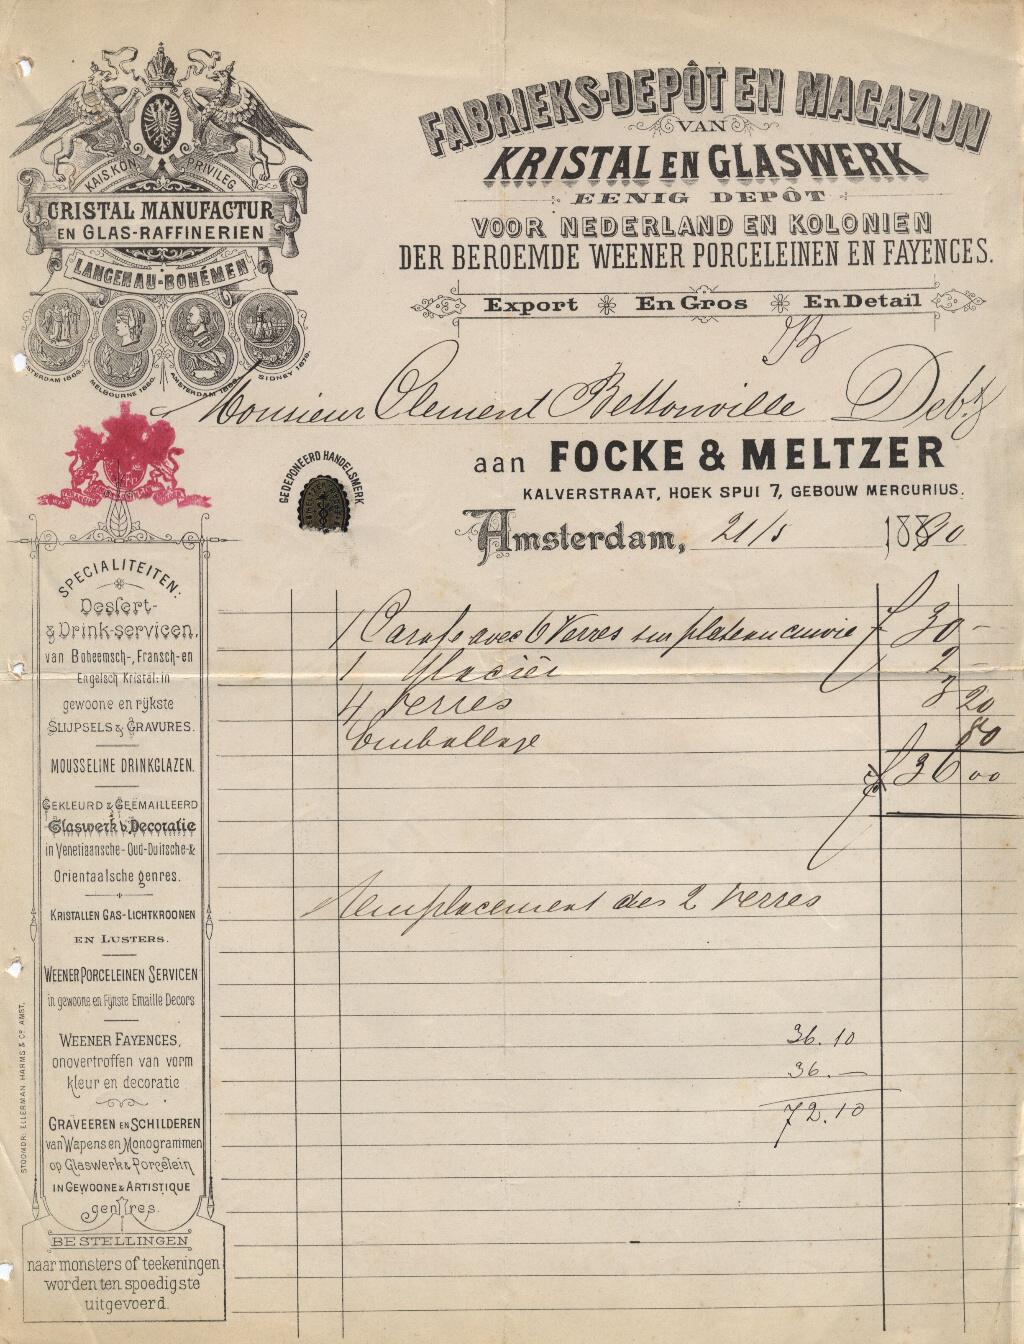 KAIS.KÖN. PRIVILEG.
CRISTAL MANUFACTUR
EN GLAS-RAFFINERIEN
LANGENAU-BOHÉMEN
MELBOURNE 1880.
SIDNEY 1879.
FABRIEKS-DEPÔT EN MAGAZIJN
VAN
KRISTAL EN GLASWERK
EENIG DEPÔT
VOOR NEDERLAND EN KOLONIEN
DER BEROEMDE WEENER PORCELEINEN EN FAYENCES.
Export En Gros En Detail
Monsieur Clement Bettonville Debt
aan FOCKE & MELTZER
KALVERSTRAAT, HOEK SPUI 7, GEBOUW MERCURIUS.
GEDEPONEERD HANDELSMERK
Amsterdam, 21/5 1890
1 Carafe avec 6 Verres sur plateau cuivre f 30 -
1 Glacier 2 -
4 Verres 3 20
Emballage 80
f 36 00
Remplacement des 2 Verres
36.10
36.—
72.10
SPECIALITEITEN:
Dessert-
& Drink-servicen,
van Boheemsch-, Fransch- en
Engelsch Kristal: in
gewoone en rijkste
SLIJPSELS & GRAVURES.
MOUSSELINE DRINKGLAZEN.
GEKLEURD & GEËMAILLEERD
Glaswerk v. Decoratie
in Venetiaansche- Oud-Duitsche- &
Orientaalsche genres.
KRISTALLEN GAS-LICHTKROONEN
EN LUSTERS.
WEENER PORCELEINEN SERVICEN
in gewoone en Fijnste Emaille Decors
WEENER FAYENCES,
onovertroffen van vorm
kleur en decoratie
GRAVEEREN EN SCHILDEREN
van Wapens en Monogrammen
op Glaswerk & Porcelein
IN GEWOONE & ARTISTIQUE
genres.
BESTELLINGEN
naar monsters of teekeningen
worden ten spoedigste
uitgevoerd.
STOOMDR. ELLERMAN HARMS & Co AMST.